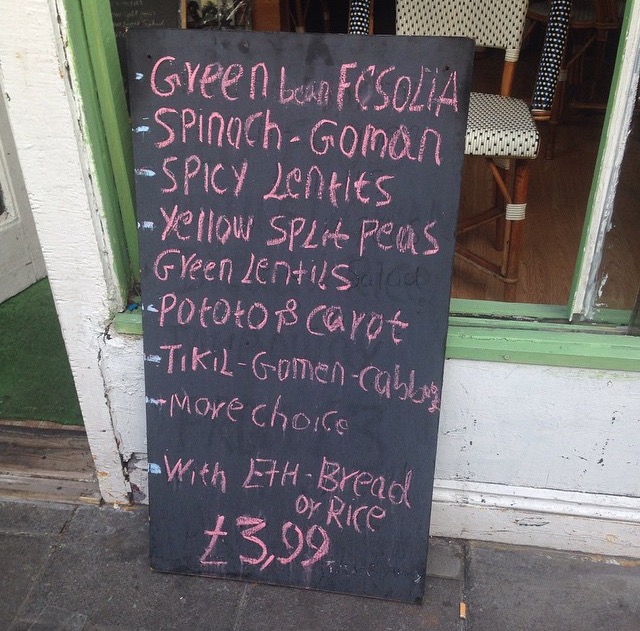 Green bean FCSOLIA
SPINach - GOMAN
SPICY LENtILS
Yellow SPLit Peas
Green Lentils Salad
POtOtO & CarOt
TIKIL - Gomen - cabbage
More choice
With EtH - Bread
or Rice
£3,99